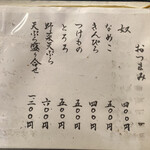 おつまみ
奴 四〇〇円
なめこ 五〇〇円
きんぴら 四〇〇円
つけもの 五〇〇円
とろろ 五〇〇円
野菜天ぷら 六〇〇円
天ぷら盛り合せ 一二〇〇円